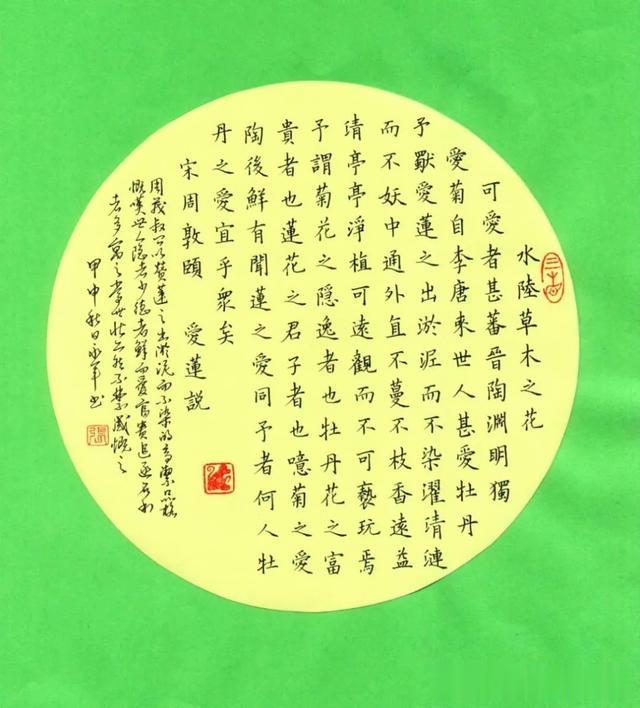 水陸草木之花
可愛者甚蕃晉陶淵明獨
愛菊自李唐来世人甚愛牡丹
予獸愛蓮之出淤泥而不染濯清漣
而不妖中通外直不蔓不枝香遠益
清亭亭淨植可遠觀而不可褻玩焉
予謂菊花之隐逸者也牡丹花之富
貴者也蓮花之君子者也噫菊之愛
陶後鮮有聞蓮之愛同予者何人牡
丹之愛宜乎衆矣
宋周敦頤 愛蓮説
周茂叔以赞蓮之出淤泥而不染的高潔品格
慨嘆世人隐者少德者鮮而愛富貴追逐名利
者多寓之當世状亦然不禁感慨之
甲申秋日永軍书
張